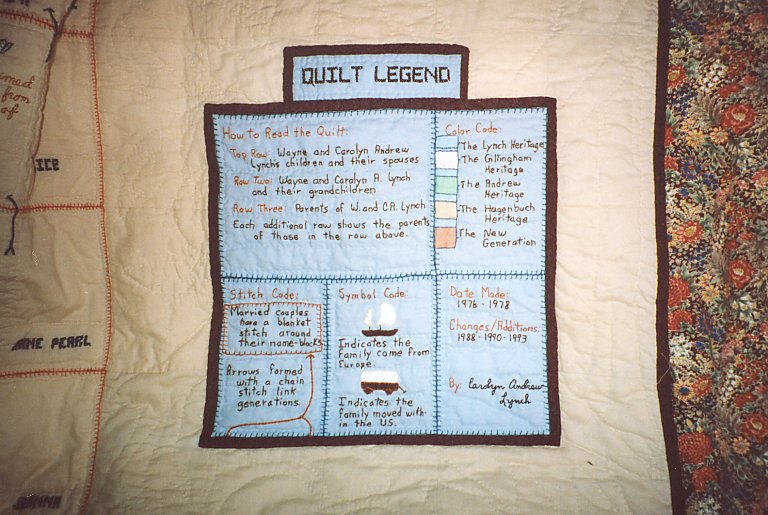 QUILT LEGEND
How to Read the Quilt:
Top Row: Wayne and Carolyn Andrew
Lynch's children and their spouses
Row Two: Wayne and Carolyn A. Lynch
and their grandchildren
Row Three: Parents of W. and C.A. Lynch
Each additional row shows the parents
of those in the row above.
Color Code:
The Lynch Heritage
The Gillingham
Heritage
The Andrew
Heritage
The Hagenbuch
Heritage
The New
Generation
Stitch Code:
Married couples
have a blanket
stitch around
their name-blocks
Arrows formed
with a chain
stitch link
generations.
Symbol Code:
Indicates the
Family came from
Europe.
Indicates the
family moved with-
in the U.S.
Date Made:
1976 - 1978
Changes/Additions:
1988 - 1990 - 1993
By: Carolyn Andrew
Lynch
from
of
ICE
PEARL